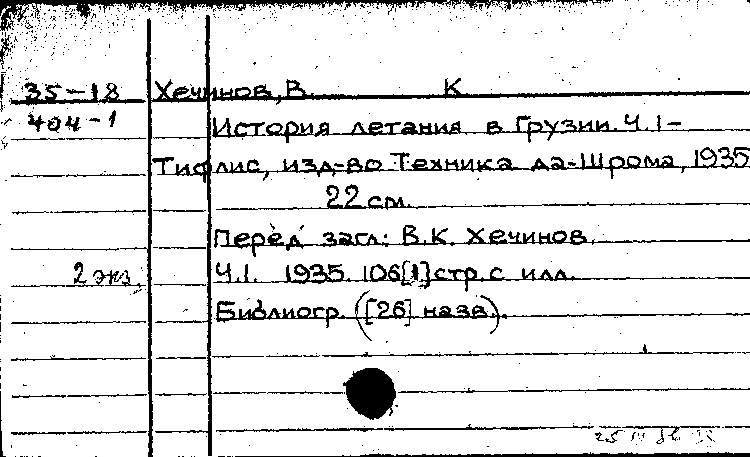 35-18 Хечинов, В. К
404-1 История летания в Грузии. Ч.1-
Тифлис, изд-во Техника да-Шрома, 1935
22 см.
Перед загл: В.К. Хечинов.
2 экз. Ч.1. 1935. 106[1] стр. с илл.
Библиогр. ([26] назв.).